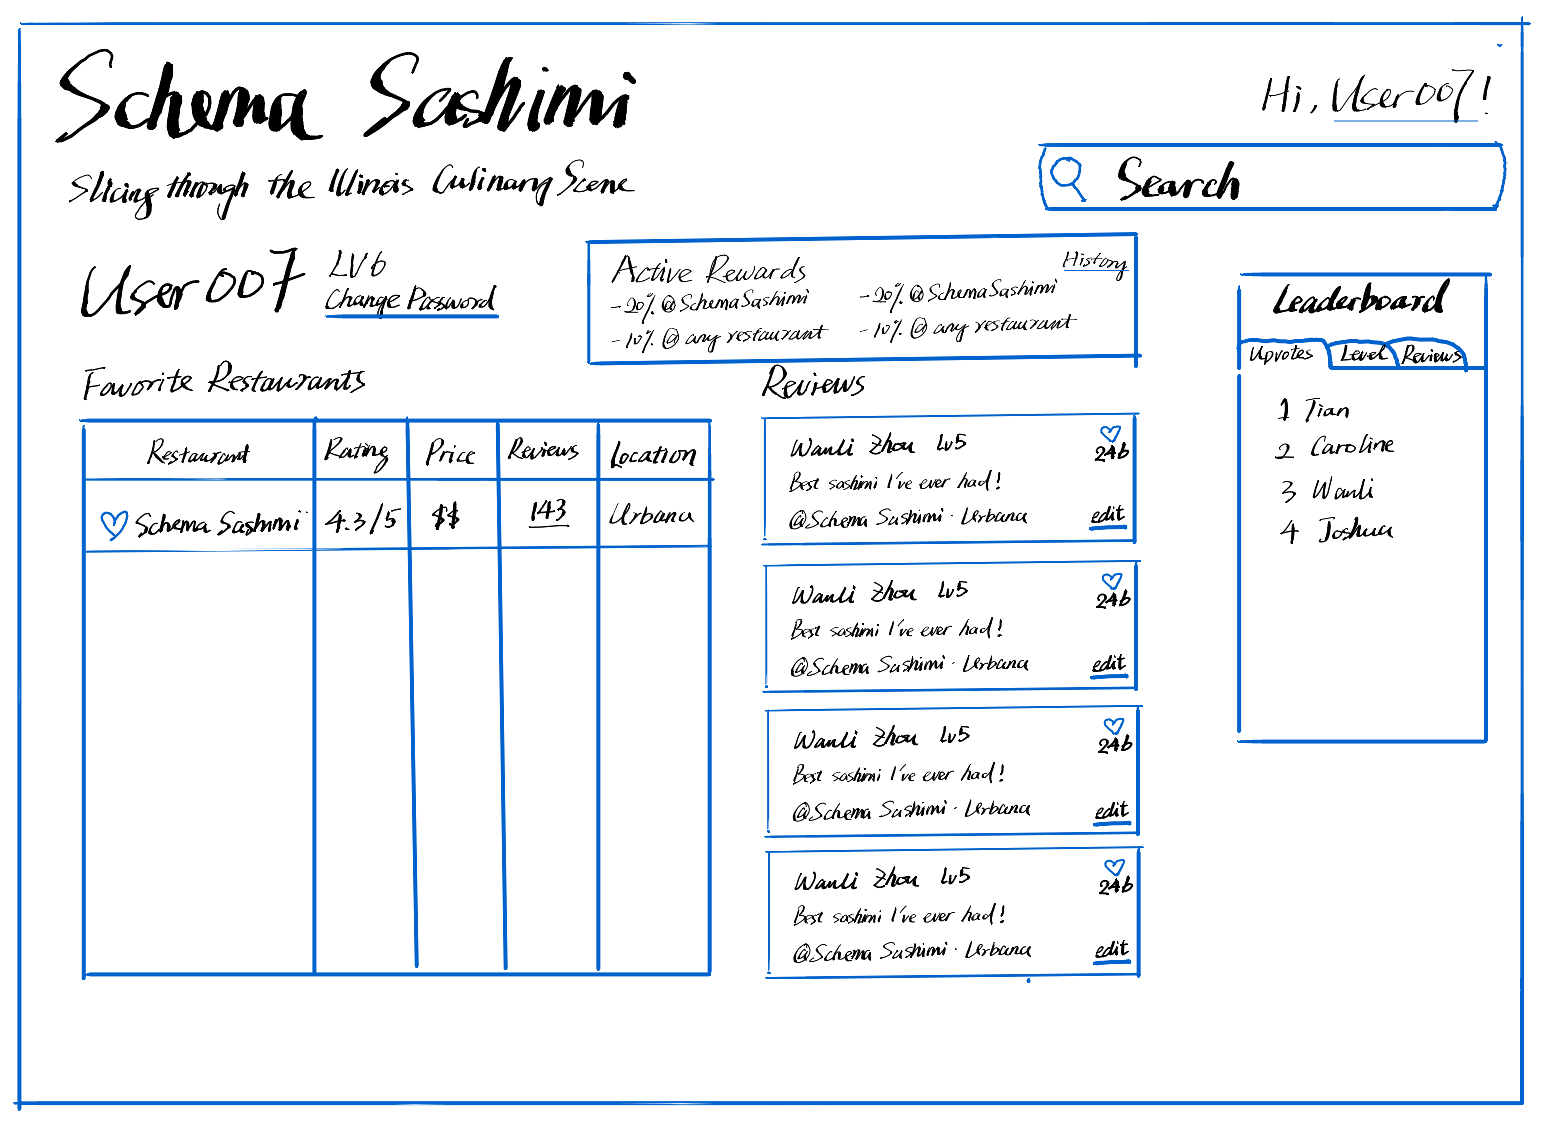 Schema Sashimi
Hi, User007!
Slicing through the Illinois Culinary Scene
Search
User007
LV6
Change Password
Active Rewards
History
-20% @SchemaSashimi
-20% @SchemaSashimi
-10% @ any restaurant
-10% @ any restaurant
Favorite Restaurants
Restaurant Rating Price Reviews Location
Schema Sashimi 4.3/5 $$ 143 Urbana
Reviews
Wanli Zhou Lv5
246
Best sashimi I've ever had!
@Schema Sashimi · Urbana
edit
Wanli Zhou Lv5
246
Best sashimi I've ever had!
@Schema Sashimi · Urbana
edit
Wanli Zhou Lv5
246
Best sashimi I've ever had!
@Schema Sashimi · Urbana
edit
Wanli Zhou Lv5
246
Best sashimi I've ever had!
@Schema Sashimi · Urbana
edit
Leaderboard
Upvotes Level Reviews
1 Tian
2 Caroline
3 Wanli
4 Joshua